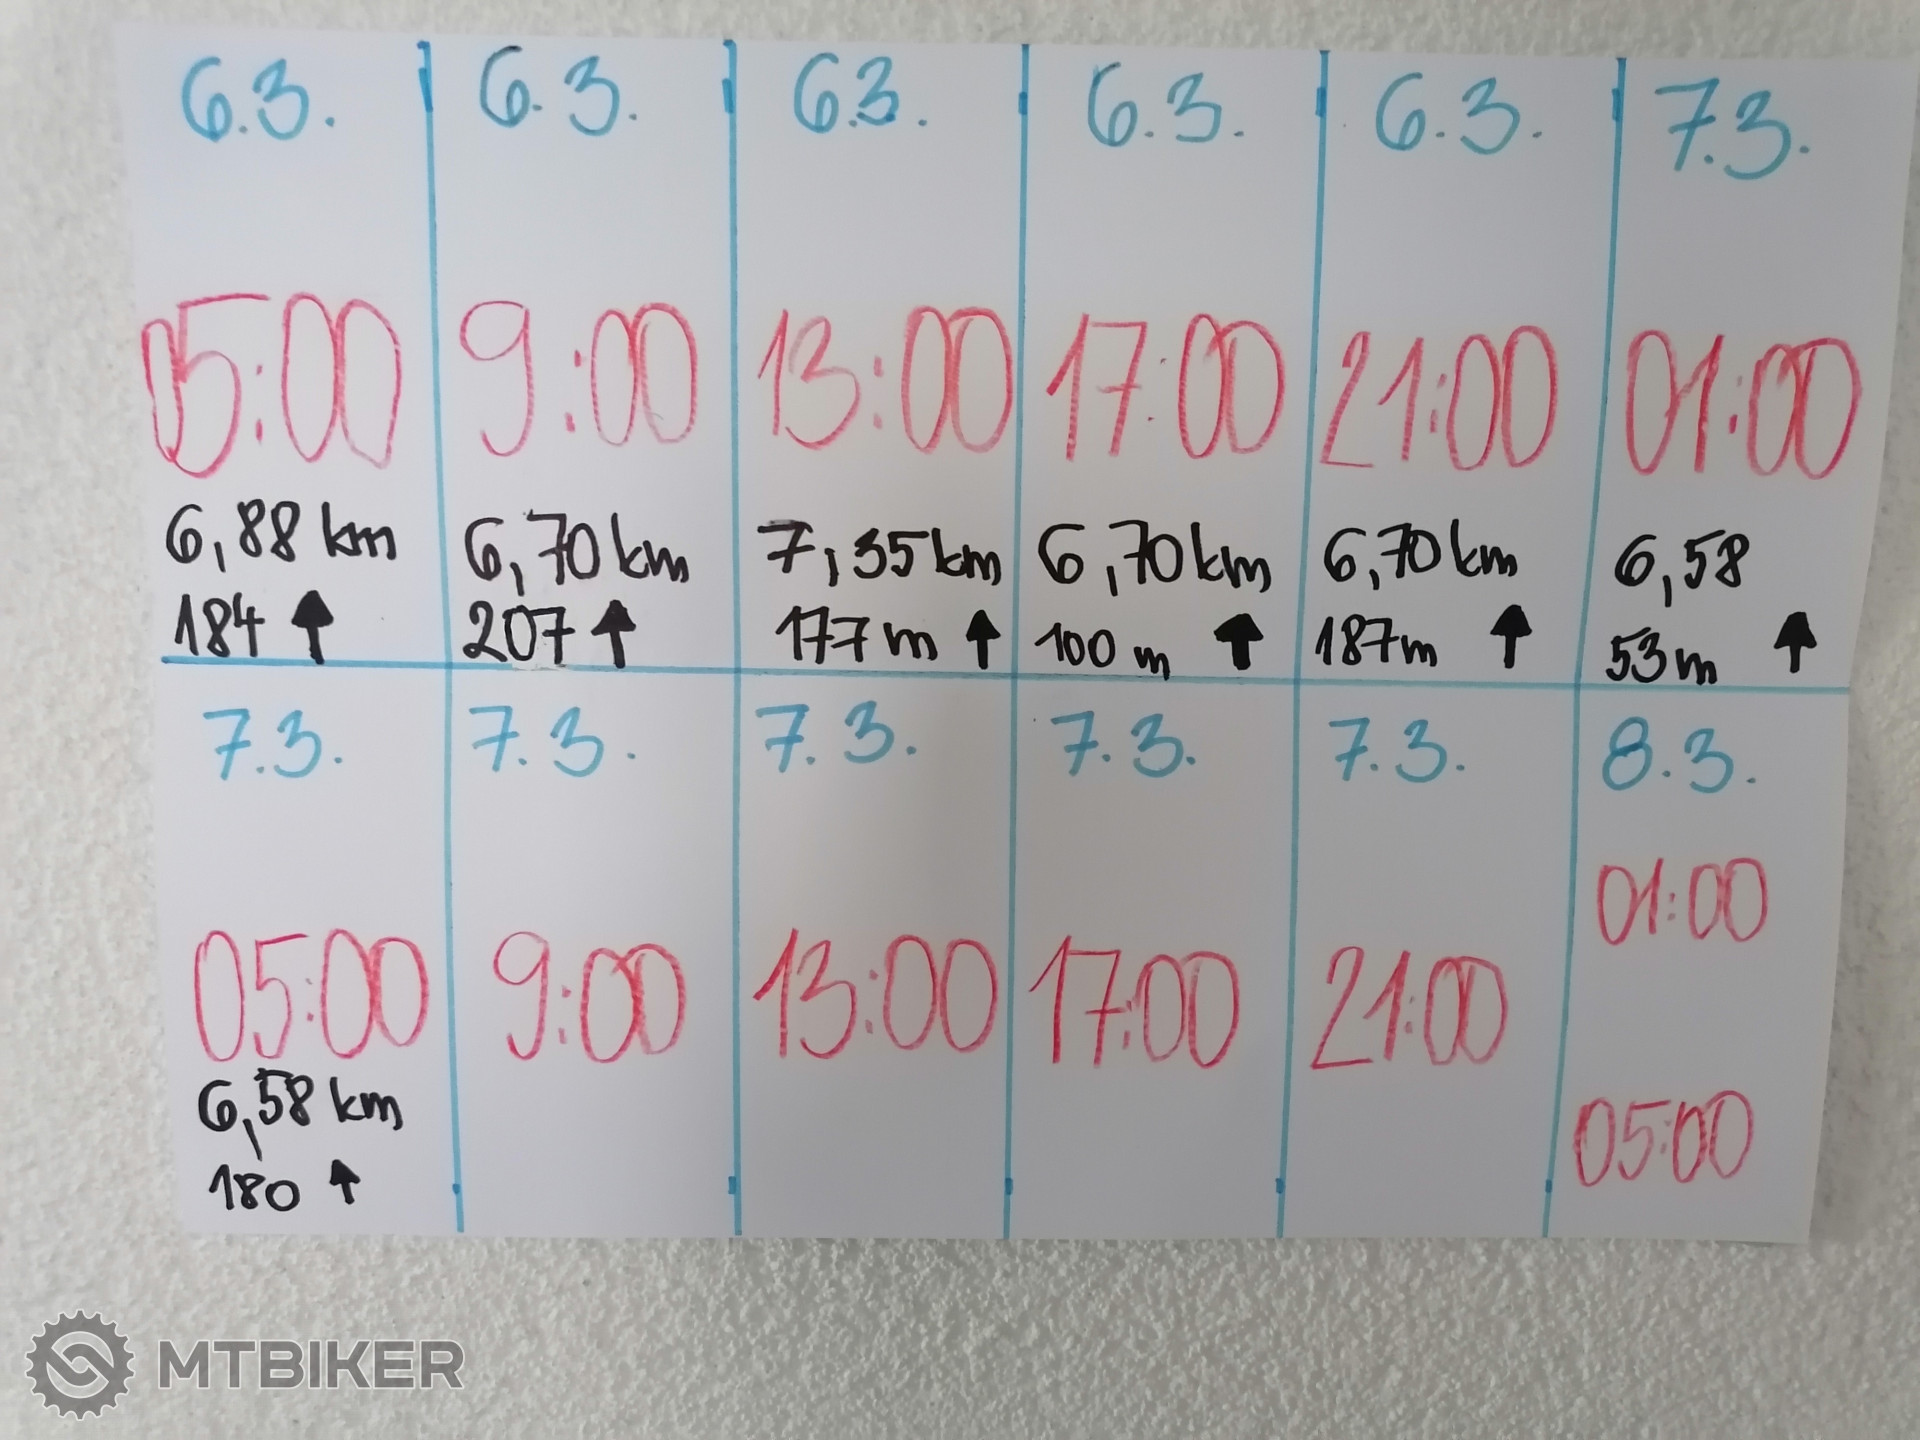 6.3.
05:00
6,88 km
184 ↑
6.3.
9:00
6,70 km
207 ↑
6.3.
13:00
7,35 km
177 m ↑
6.3.
17:00
6,70 km
100 m ↑
6.3.
21:00
6,70 km
187 m ↑
7.3.
01:00
6,58
53 m ↑
7.3.
05:00
6,58 km
180 ↑
7.3.
9:00
7.3.
13:00
7.3.
17:00
7.3.
21:00
8.3.
01:00
05:00
MTBIKER